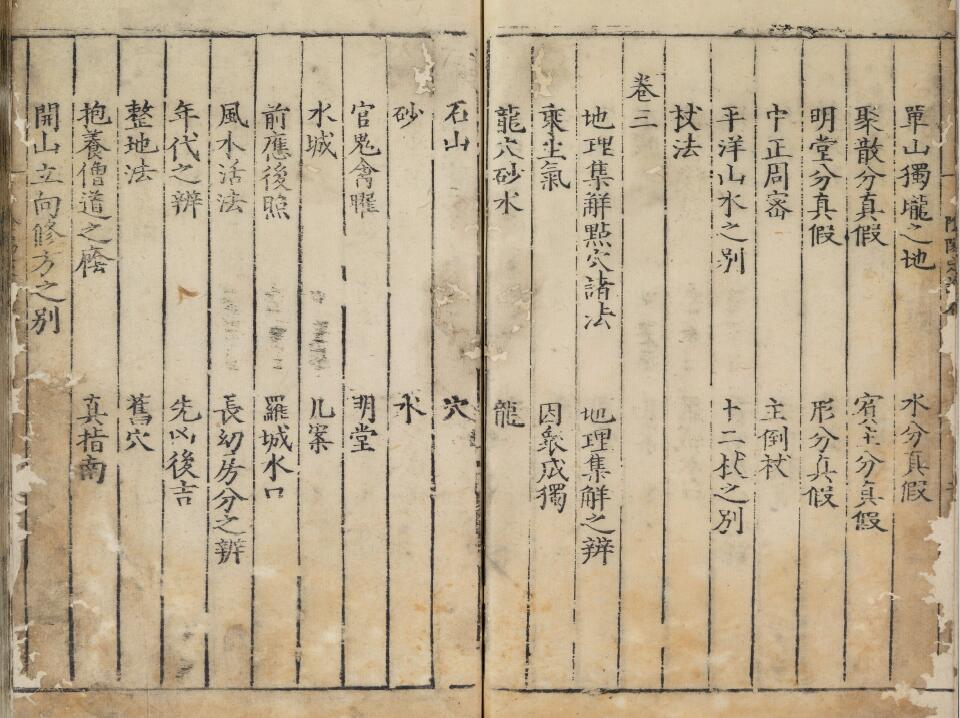 單山獨壠之地　水分真假
聚散分真假　賓主分真假
明堂分真假　形分真假
中正周密　主倒杖
平洋山水之別　十二杖之別
杖法
卷三
地理集解點穴諸法　地理集解之辨
乘生氣　因衆成獨
龍穴砂水　龍
石山　穴
砂　水
官鬼禽曜　明堂
水城　几案
前應後照　羅城水口
風水活法　長幼房分之辨
年代之辨　先凶後吉
整地法　舊穴
抱養僧道之廕　真指南
開山立向修方之別